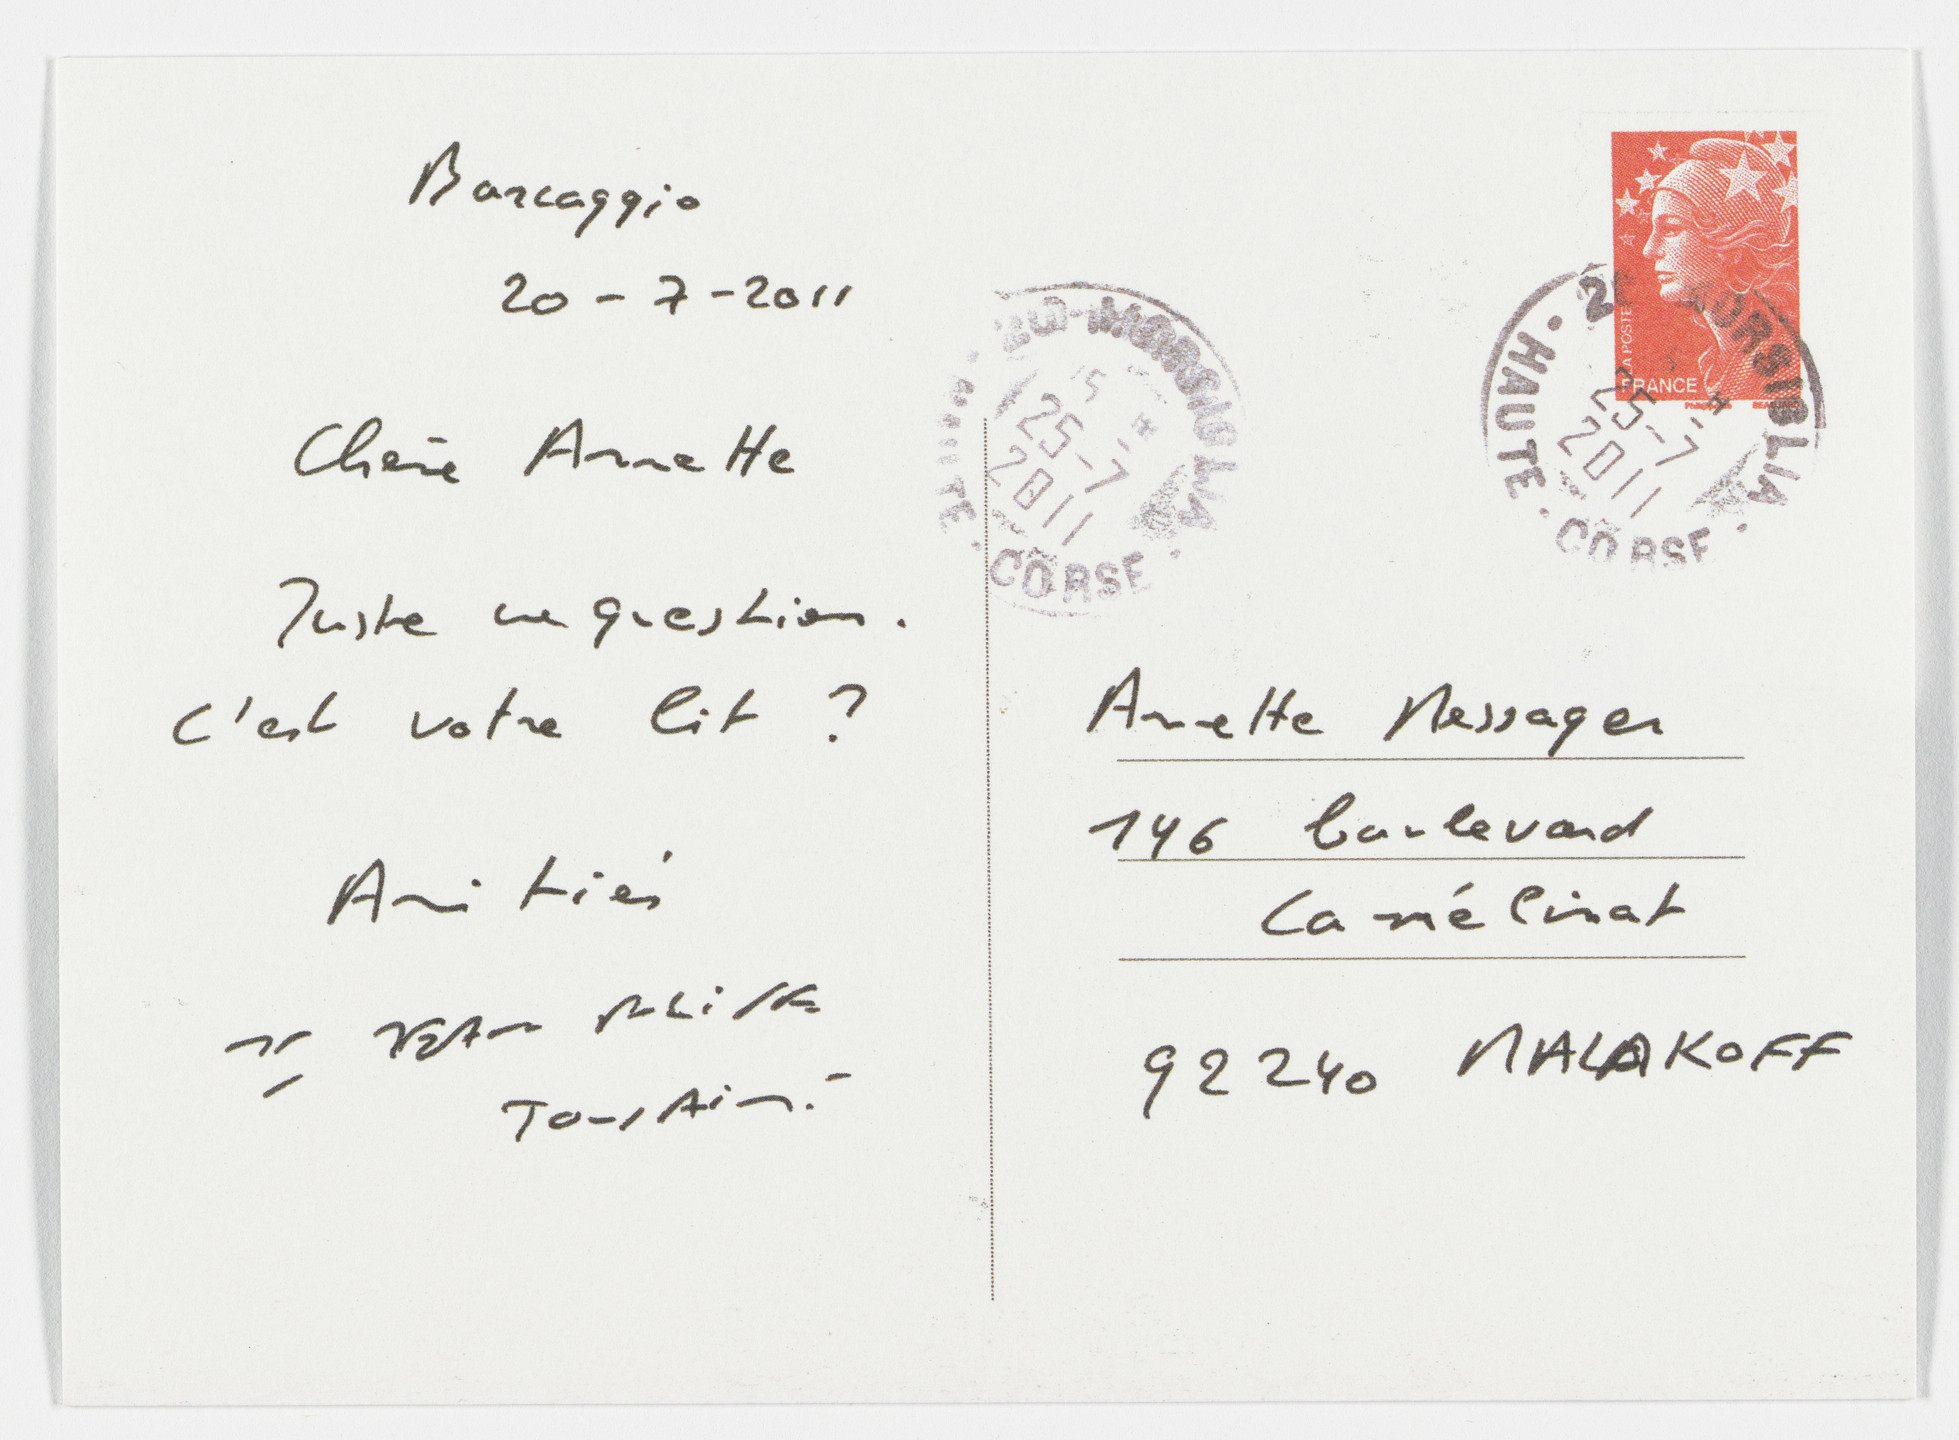 Barcaggio
20 - 7 - 2011
Chère Annette
Juste une question.
C'est votre lit ?
Amitiés
Toussaint
LA POSTE
FRANCE
MORSIGLIA
HAUTE · CORSE
25-7
2011
MORSIGLIA
CORSE
25-7
2011
Annette Messager
146 boulevard
Camélinat
92240 MALAKOFF